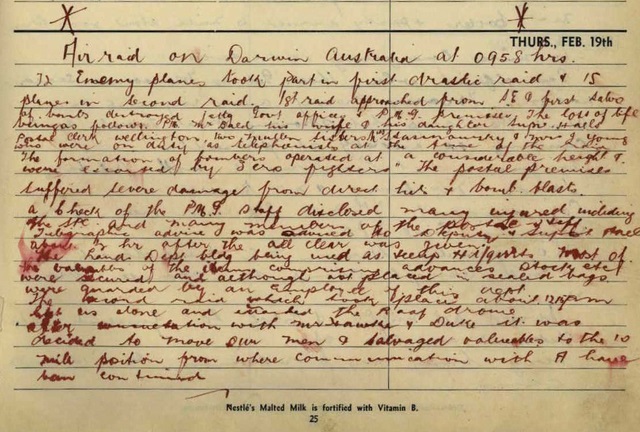 THURS., FEB. 19th
Air raid on Darwin Australia at 0958 hrs.
72 Ememy planes took part in first drastic raid & 15
planes in second raid. 1st raid approached from S.E & first salvo
of bombs destroyed Govt offices & P.M.G. premises. The loss of life
was as follows. P.M. Mr Bald his wife & his daughter. Supt. Halls
Postal clerk Wellington, two Mullen sisters, Stasinowsky & Young
who were on duty as telephonists at the time of the
The formation of bombers operated at a considerable height &
were escorted by Zero fighters. The postal premises
suffered severe damage from direct hits & bomb blasts.
a check of the P.M.G. Staff disclosed many injured including
The and many members of the postal staff
Telegraphic advice was to
hr after the all clear was given
The Lands Dept bldg being used as H.Qrts. Most of
the valuables of the comprising advances stock etc
were secured and although not placed in sealed bags
were guarded by an Employee of this dept.
The second raid which took place about pm
left us alone and attended the R.a.a.f drome.
after with Mr & Duke it was
decided to move our men & salvaged valuables to the 10
mile position from where communication with A have
been continued
Nestlé's Malted Milk is fortified with Vitamin B.
25